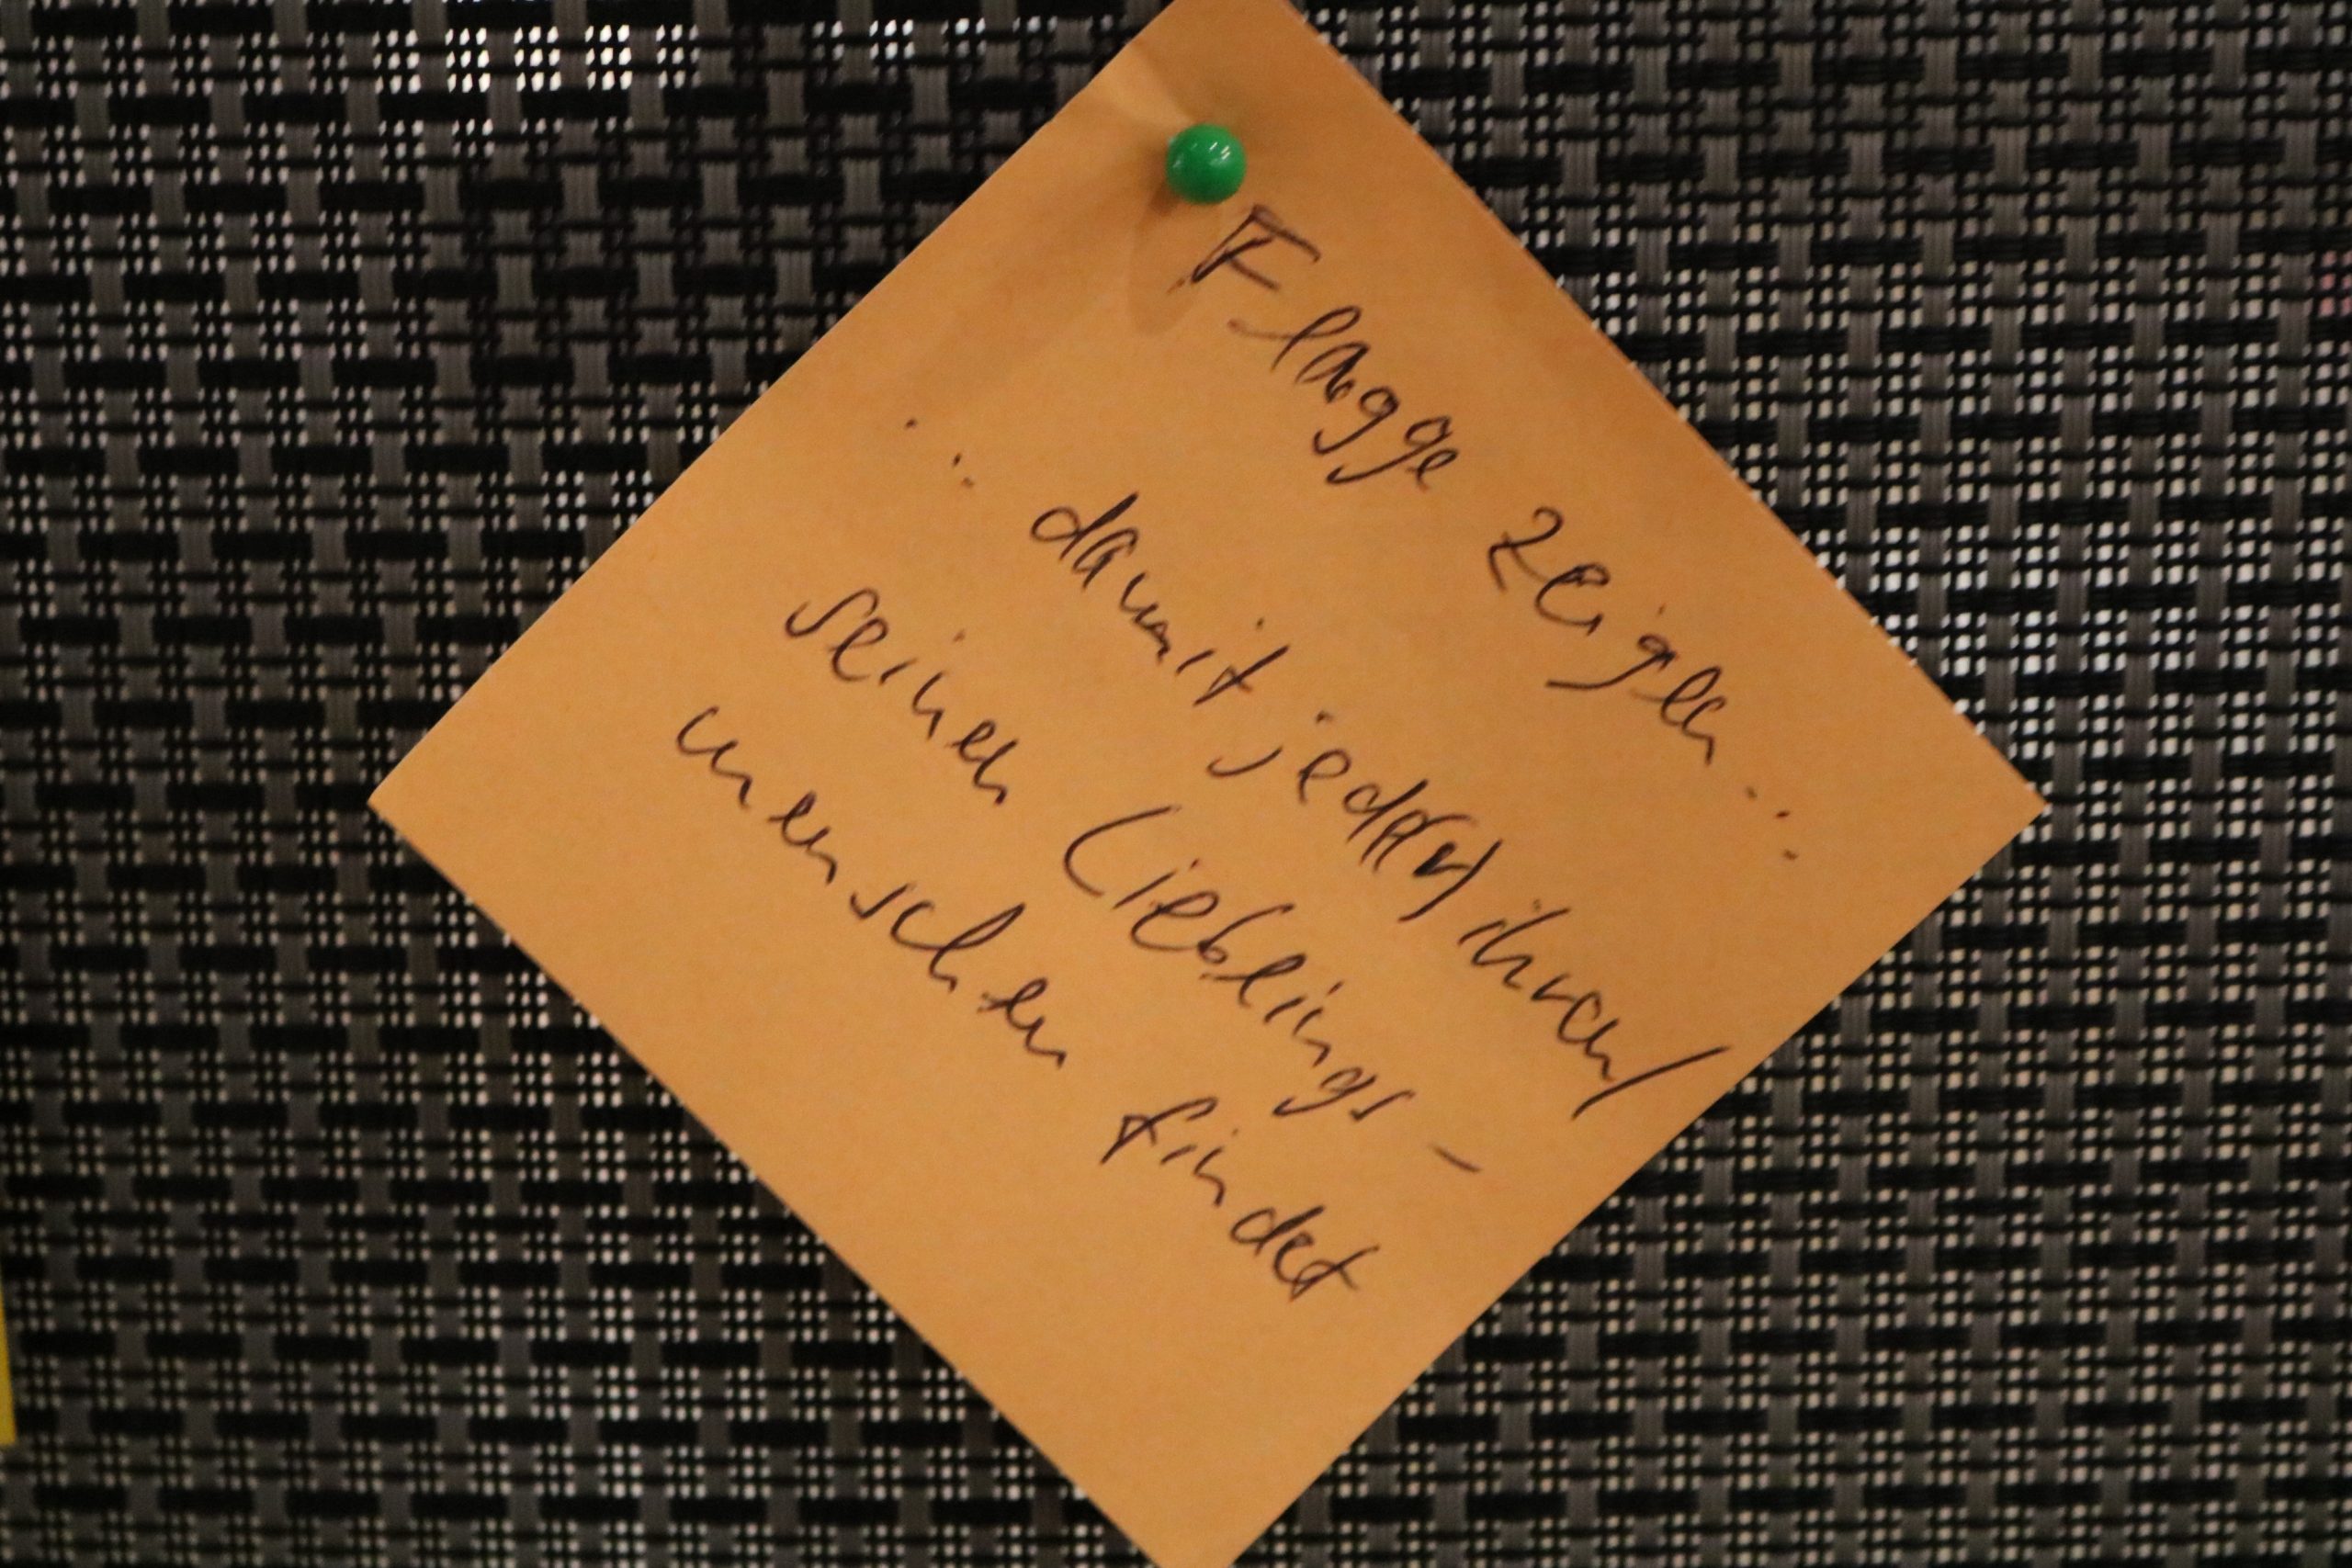 Flagge zeigen...
... damit jede(r) ihren/
seinen Lieblings-
menschen findet